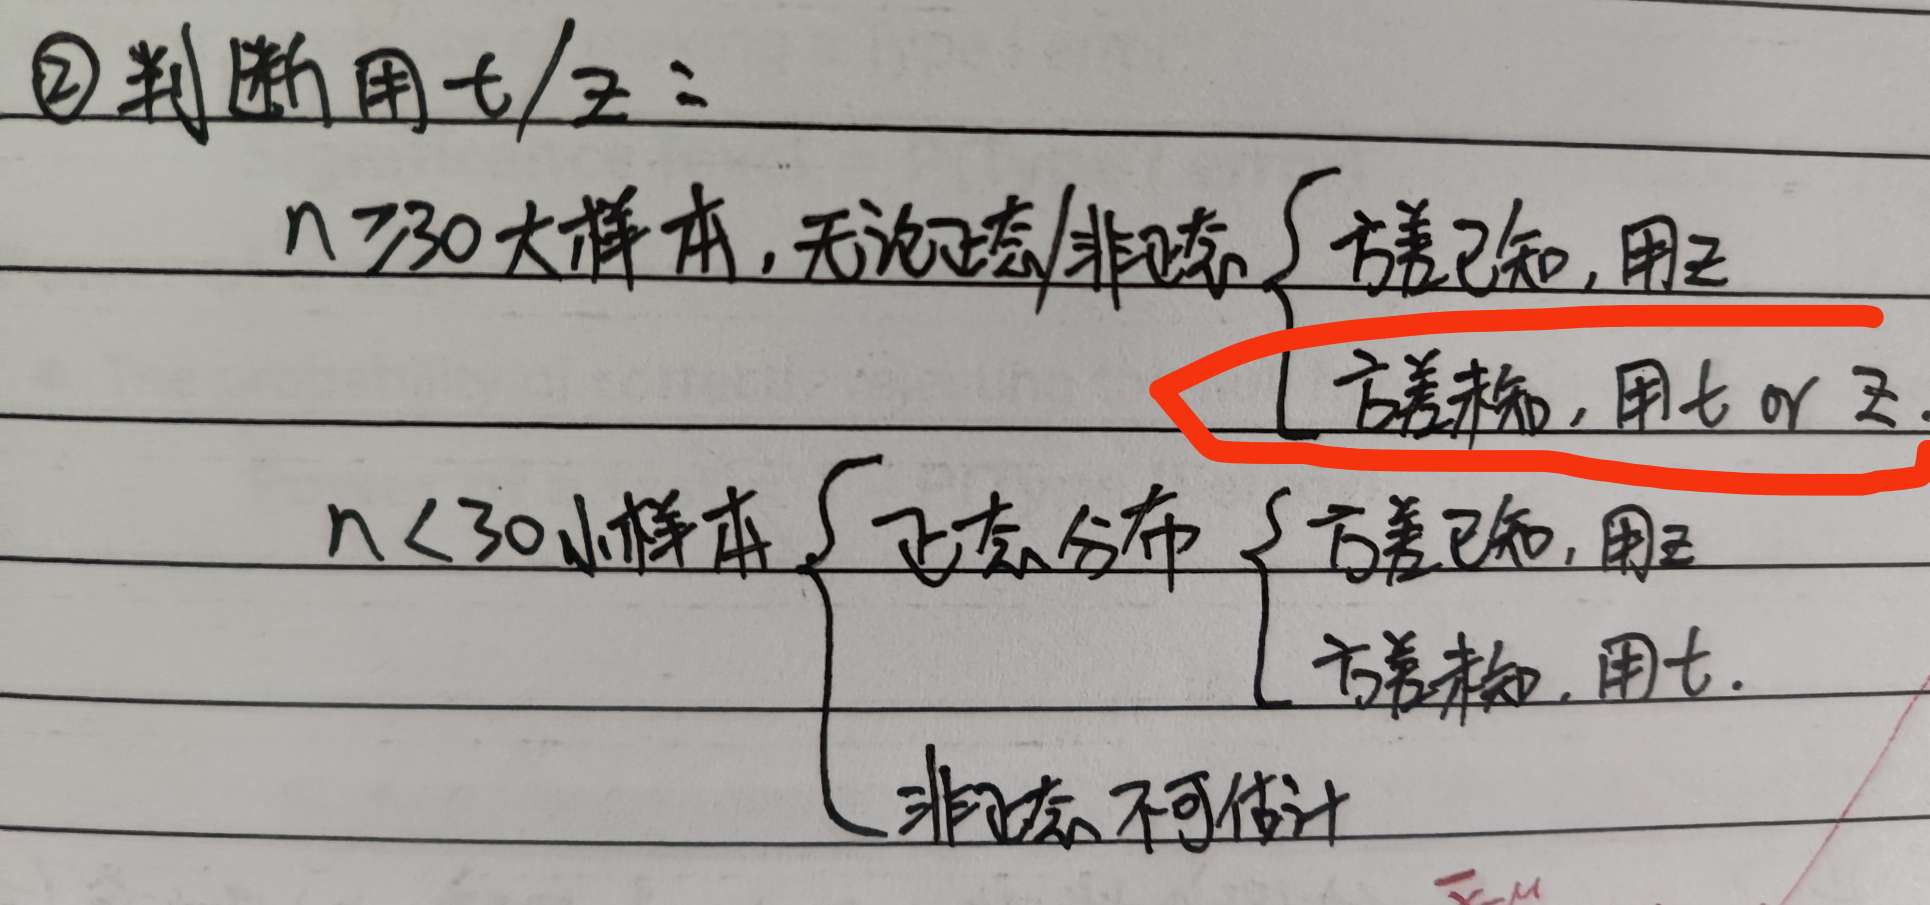 ②判断用t/z:
n≥30大样本,无论正态/非正态 方差已知,用z
方差未知,用t or z.
n<30小样本 正态分布 方差已知,用z
方差未知,用t.
非正态不可估计
x̄-μ